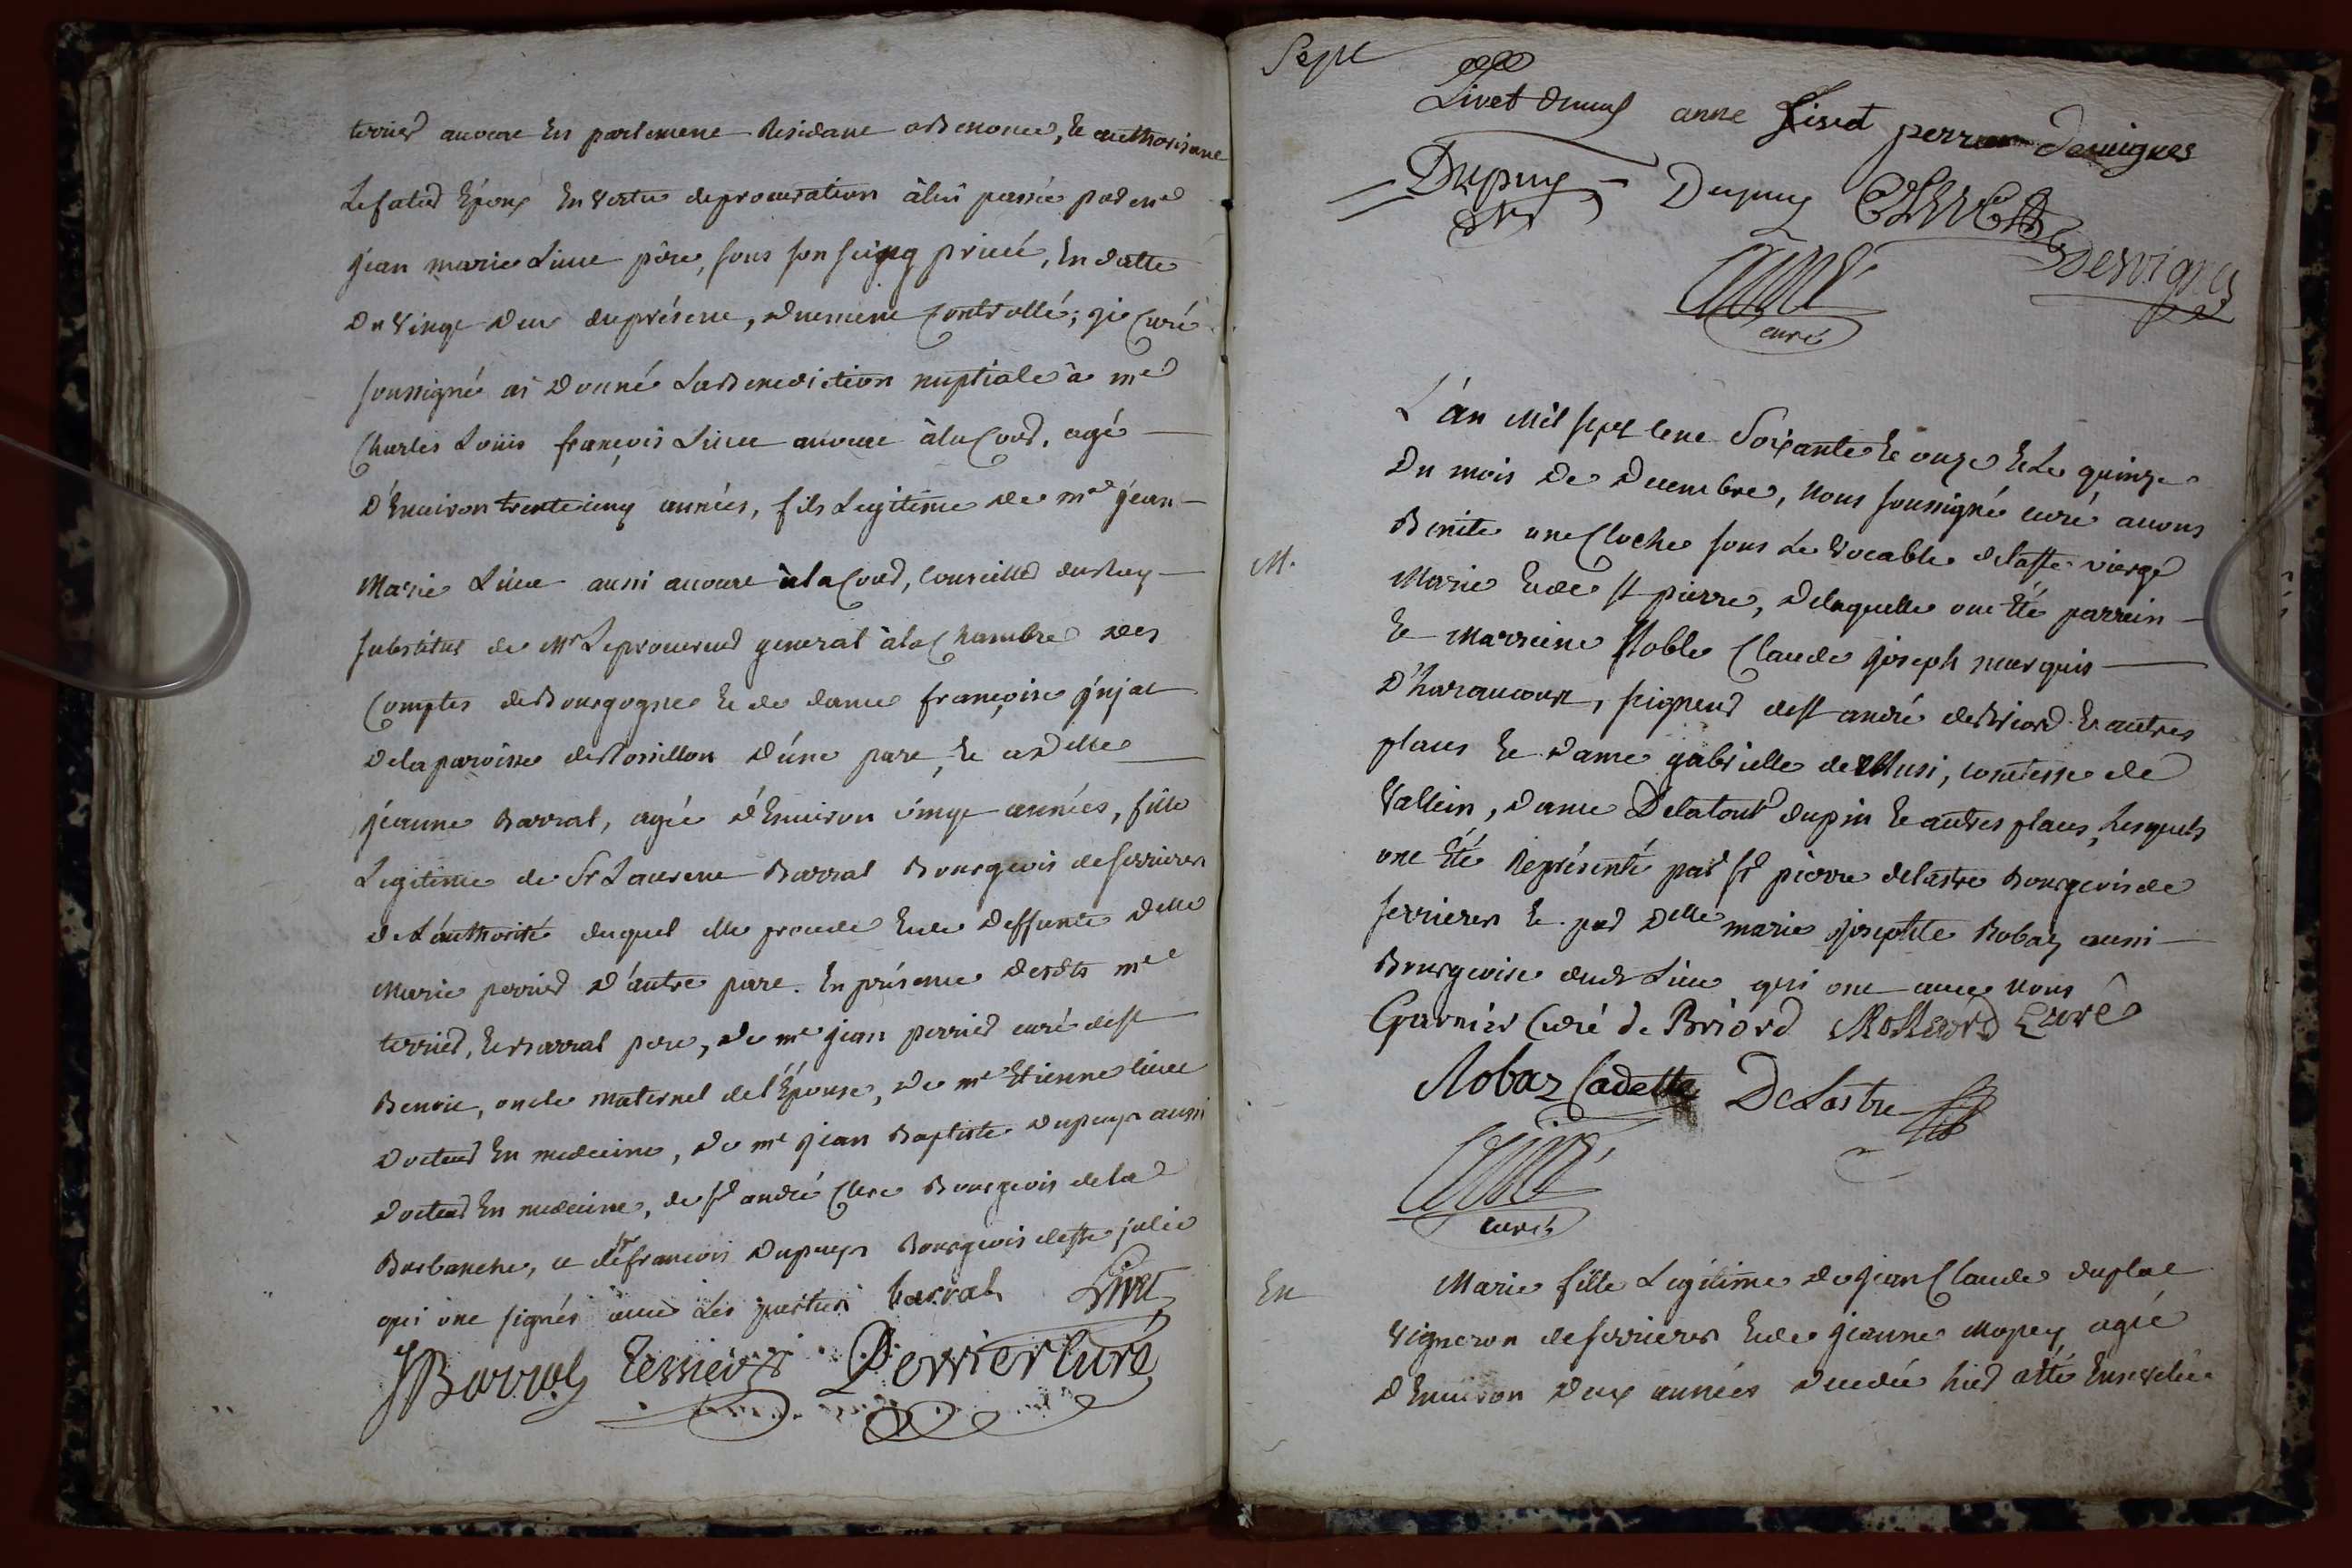 terrier avocat En parlement Residant a Benonce, Et authorisant
Le futur Epoux En vertu de procuration à lui passée par me
jean marie Livet père, sous son seing privé, En datte
Du vingt deux du présent, duement Controllé; je Curé
soussigné ai Donné La Benediction nuptiale à me
Charles Louis françois Livet avocat à la Cour, agé
D'Environ trente cinq années, fils Legitime de me jean
Marie Livet aussi avocat à la Cour, Conseiller du Roy
substitut de Mr Le procureur general à la Chambre des
Comptes de Bourgogne Et de dame françoise
De la paroisse de Rossillon D'une part, Et a Delle
jeanne Barral, agée d'Environ vingt années, fille
Legitime de Sr Laurent Barral Bourgeois de serrieres
de L'authorité duquel elle procede Et de Deffunte Delle
Marie perrier D'autre part. En présence desdts me
terrier, Et Barral pere, de me jean perrier curé de st
Benoit, oncle maternel de l'Épouse, de me Etienne livet
Docteur En medecine, de me jean Baptiste Dupuy aussi
Docteur En medecine, de sr andré Clerc Bourgeois de la
Burbanche, et de sr francois Dupuy Bourgeois de ste julie
qui ont signés avec Les parties barral Livet
JBarral terrier Perrier Curé
Sept
Livet anne Livet perrier Desvignes
Dupuy Dupuy Desvignes
curé
L'an mil sept cent Soixante Et onze Et Le quinze
Du mois De Decembre, Nous soussigné curé avons
Benite une Cloche sous Le Vocable de la ste vierge
M.
Marie Et de st pierre, de laquelle ont Été parrein
Et Marreine Noble Claude joseph marquis
D'haraucourt, seigneur de st andré de Briord Et autres
places Et Dame gabrielle de Musi, comtesse de
Vallein, Dame De la tour dupin Et autres places, Lesquels
ont Été Représenté par sr pierre delastre Bourgeois de
serrieres Et par Delle marie josephte Robaz aussi
Bourgeoise dudt Lieu qui ont avec Nous
Garnier Curé de Briord Curé
Robaz Cadette DeLastre
curé
En
Marie fille Legitime de jean Claude duplat
Vigneron de serrieres Et de jeanne agée
D'Environ Deux années decedée hier a été Ensevelie